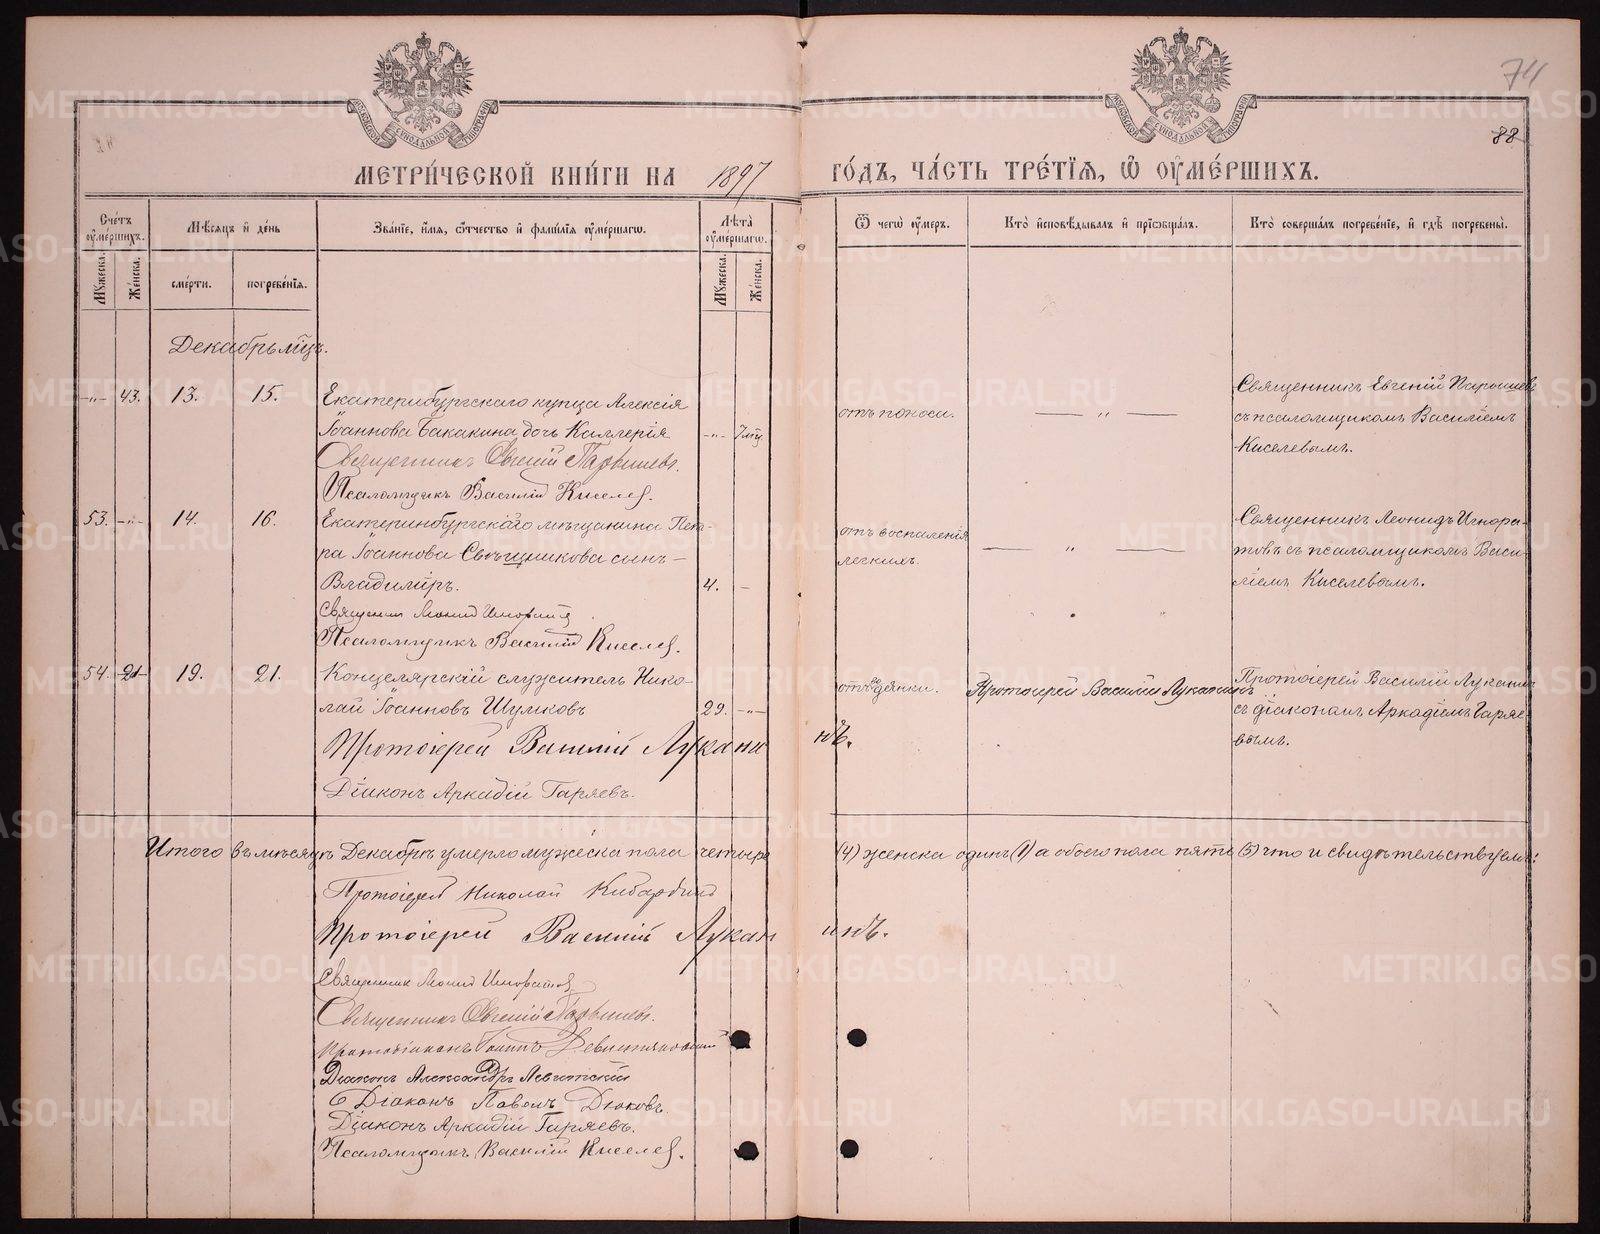 74
88
МЕТРИ́ЧЕСКОЙ КНИ́ГИ НА 1897 ГО́ДЪ, ЧА́СТЬ ТРЕ́ТІѦ, Ѡ ОУМЕ́РШИХЪ.
Сче́тъ оумершихъ.
Мꙋжеска.
Же́нска.
Мѣсѧцъ и де́нь
сме́рти.
погребе́нїѧ.
Зва́нїе, и́мѧ, ѻ́тчество и фами́лїѧ оуме́ршагѡ.
Лѣта̀ оуме́ршагѡ.
Мꙋжеска.
Же́нска.
Ѿ чегѡ̀ оу́меръ.
Кто̀ исповѣ́дывалъ и прїѻбща́лъ.
Кто̀ соверша́лъ погребе́нїе, и гдѣ̀ погребены̀.
Декабрь мцъ.
-„- 43. 13. 15.
Екатеринбургскаго купца Алексія
Іоаннова Бакакина дочь Каллерія -„- 7 мц
Священникъ Евгеній
Псаломщикъ Василій Киселев.
отъ поноса.
— „ —
Священникъ Евгеній
съ псаломщикомъ Василіемъ
Киселевымъ.
53. -„- 14. 16.
Екатеринбургскаго мѣщанина Пет-
ра Іоаннова сынъ –
Владиміръ. 4. –
Священник Леонид Игноратов
Псаломщикъ Василій Киселев.
отъ воспаленія
легкихъ.
— „ —
Священникъ Леонидъ Игнора-
товъ съ псаломщикомъ Васи-
ліемъ Киселевымъ.
54. 19. 21.
Канцелярскій служитель Нико-
лай Іоанновъ Шумковъ 29. -„-
Протоіерей Василій Луканинъ.
Діаконъ Аркадій Гаряевъ.
Протоіерей Василій Луканинъ
Протоіерей Василій Луканинъ
съ діакономъ Аркадіемъ Гаряе-
вымъ.
Итого въ мѣсяцѣ Декабрѣ умерло мужеска пола четыре (4) женска одинъ (1) а обоего пола пять (5) что и свидѣтельствуемъ:
Протоіерей Николай Кибардинъ
Протоіерей Василій Луканинъ.
Священник Леонид Игноратов
Священникъ Евгеній
Діаконъ Александръ Левитскій
Діаконъ Павелъ Дюковъ.
Діаконъ Аркадій Гаряевъ.
Псаломщикъ Василій Киселев.
METRIKI.GASO-URAL.RU